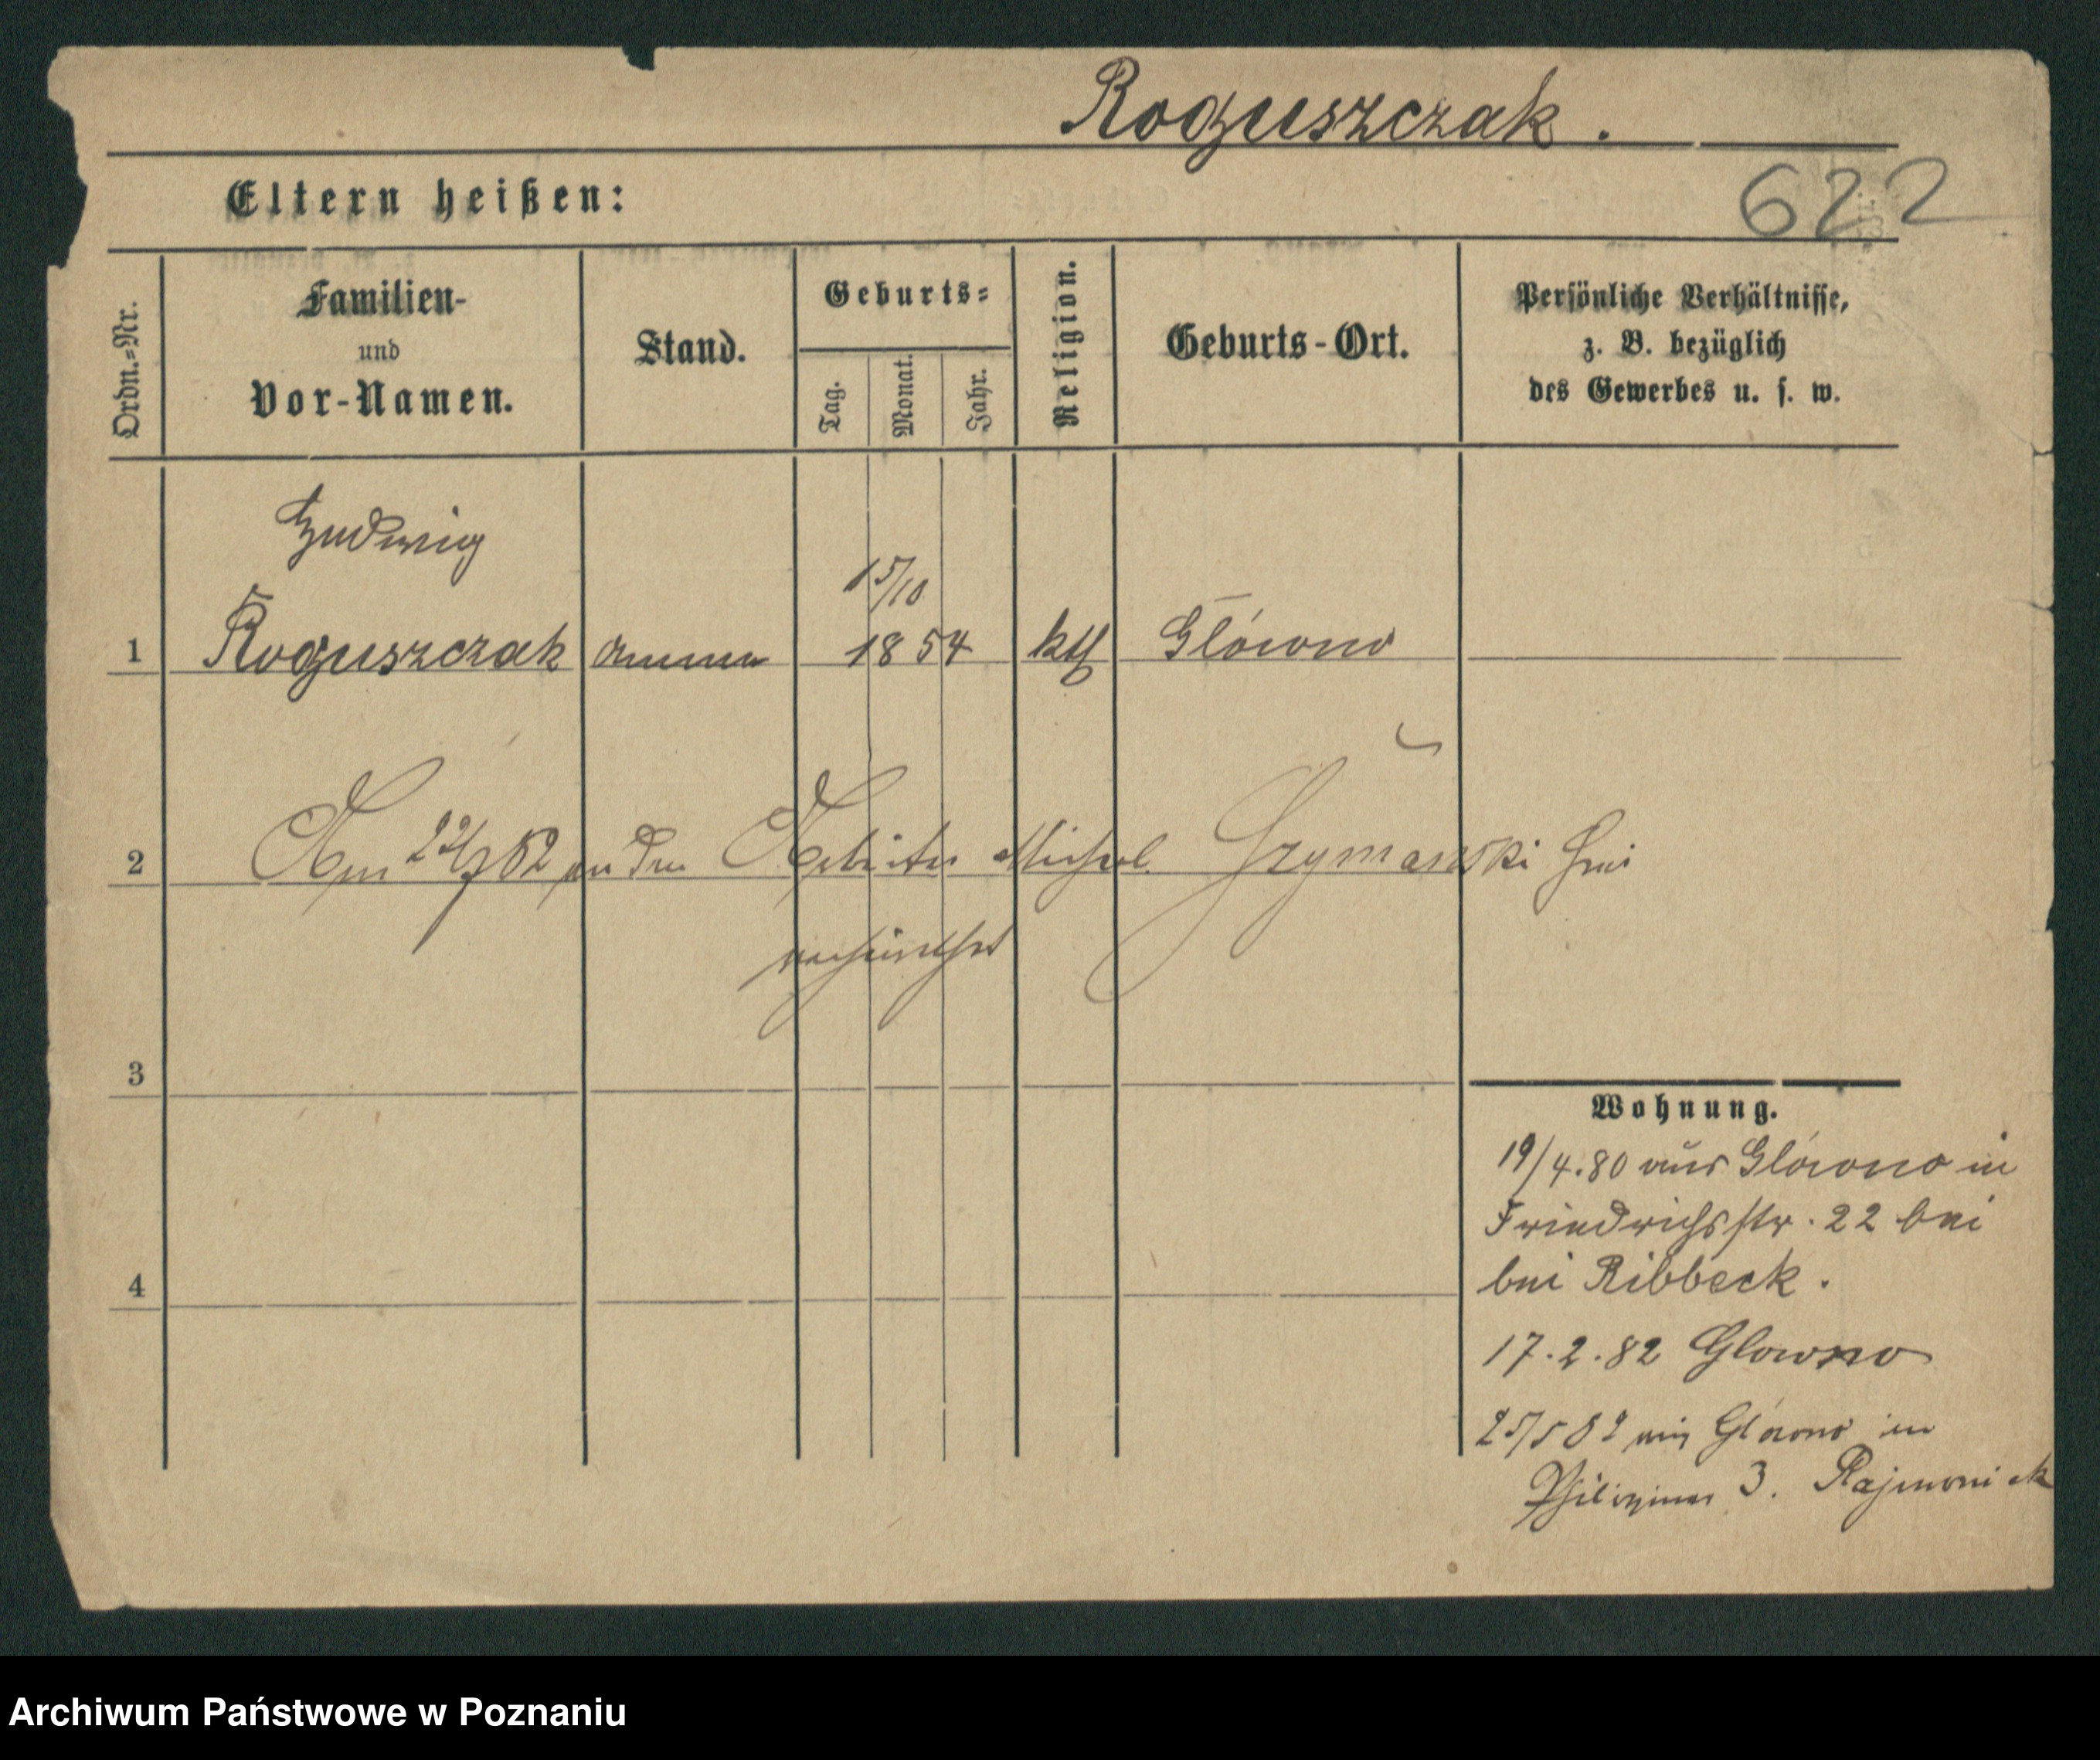 Roguszczak.
622
Eltern heißen:
Ordn.=Nr.
Familien-
und
Vor-Namen.
Stand.
Geburts=
Tag.
Monat.
Jahr.
Religion.
Geburts-Ort.
Persönliche Verhältnisse,
z. B. bezüglich
des Gewerbes u. s. w.
Hedwig
15/10
1 Roguszczak Amme 1854 kth Glówno
2 Am an den Arbeiter Michael Szymański hier
verheirathet
3
4
Wohnung.
19/4.80 aus Glówno in
Friedrichsstr. 22 bei
bei Ribbeck.
17.2.82 Glowno
25/5 82 aus Glówno in
3. Rajewoni
Archiwum Państwowe w Poznaniu